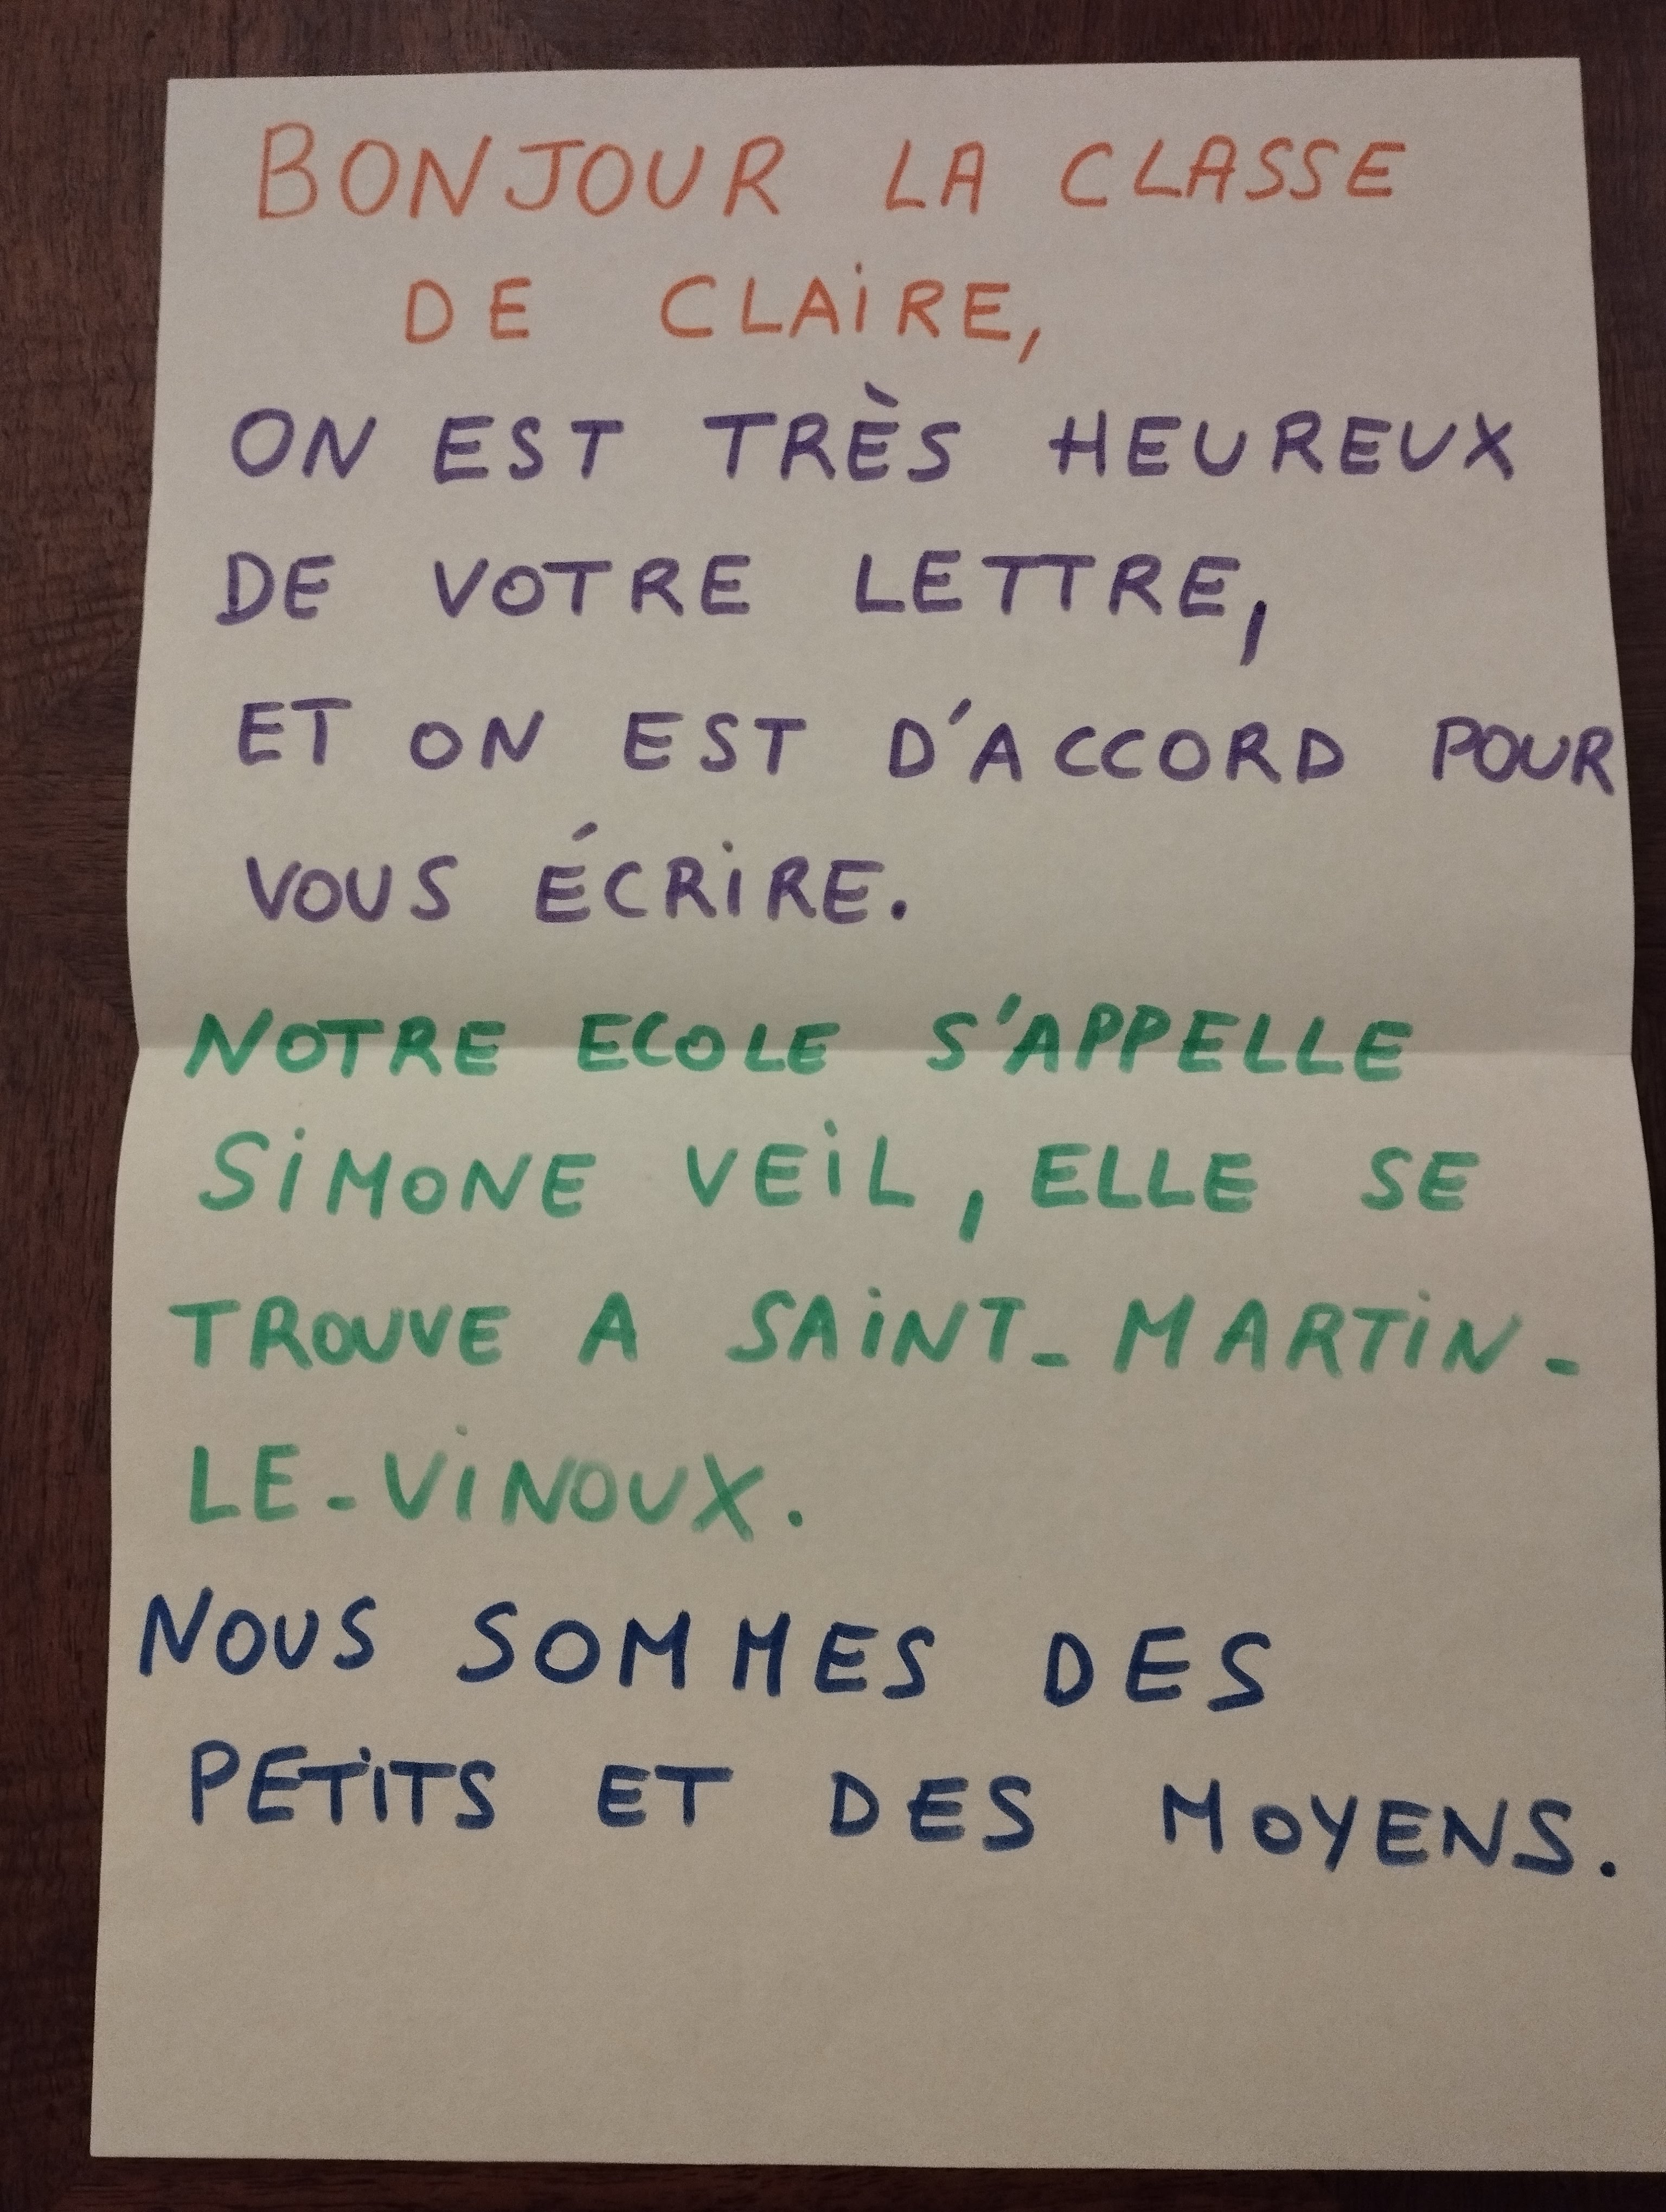 BONJOUR LA CLASSE
DE CLAIRE,
ON EST TRÈS HEUREUX
DE VOTRE LETTRE,
ET ON EST D'ACCORD POUR
VOUS ÉCRIRE.
NOTRE ECOLE S'APPELLE
SIMONE VEIL, ELLE SE
TROUVE A SAINT-MARTIN-
LE-VINOUX.
NOUS SOMMES DES
PETITS ET DES MOYENS.